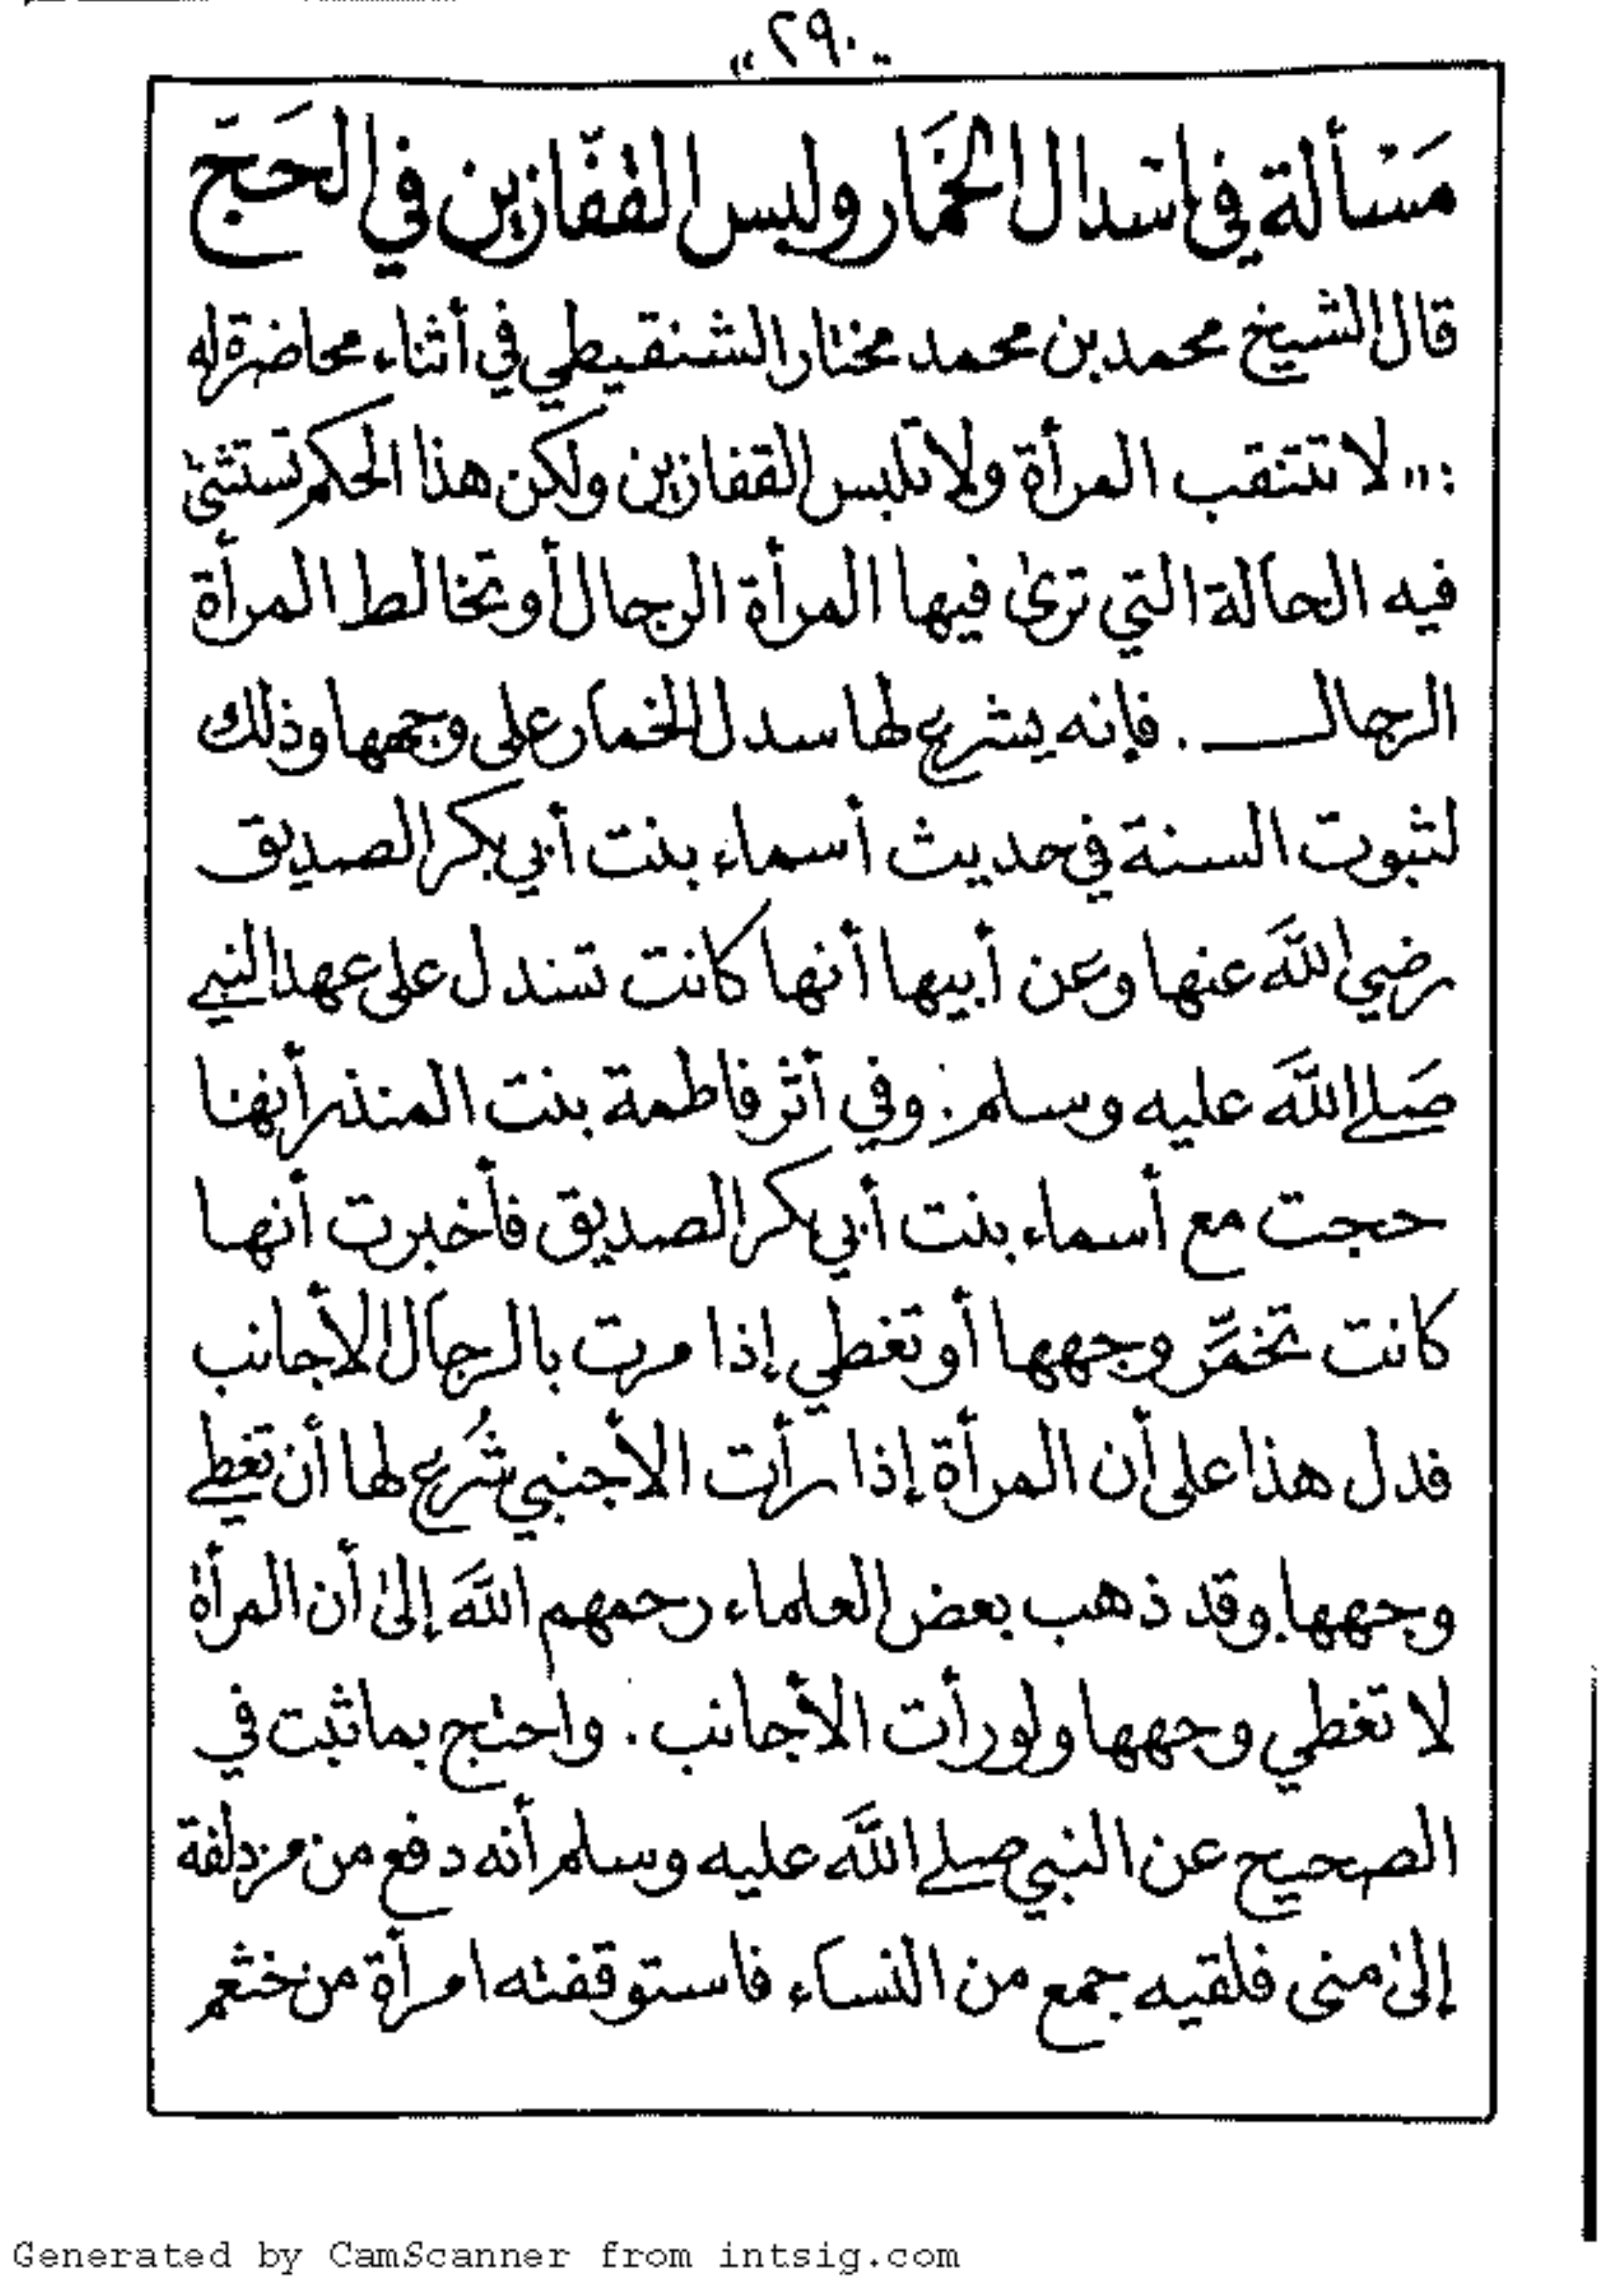 "٢٩٠"
مَسْألة في اسْدال الخمَار ولبس القفّازين في الحَجّ
قال الشيخ محمد بن محمد مختار الشنقيطي في أثناء محاضرة له
: "لا تتنقب المرأة ولا تلبس القفازين ولكن هذا الحكم تستثنى
فيه الحالة التي ترى فيها المرأة الرجال أو تخالط المرأة
الرجال . فإنه يشرع لها سدل الخمار على وجهها وذلك
لثبوت السنة في حديث أسماء بنت أبي بكر الصديق
رضي اللهَ عنها وعن أبيها أنها كانت تسدل على عهد النبي
صَلى اللهَ عليه وسلم . وفي أثر فاطمة بنت المنذر أنها
حجت مع أسماء بنت أبي بكر الصديق فأخبرت أنها
كانت تخمِّر وجهها أو تغطي إذا مرت بالرجال الأجانب
فدل هذا على أن المرأة إذا رأت الأجنبي شُرع لها أن تغطي
وجهها وقد ذهب بعض العلماء رحمهم اللهَ إلى أن المرأة
لا تغطي وجهها ولو رأت الأجانب . واحتج بما ثبت في
الصحيح عن النبي صلى اللهَ عليه وسلم أنه دفع من مزدلفة
إلى منى فلقيه جمع من النساء فاستوقفته امرأة من خثعم
Generated by CamScanner from intsig.com